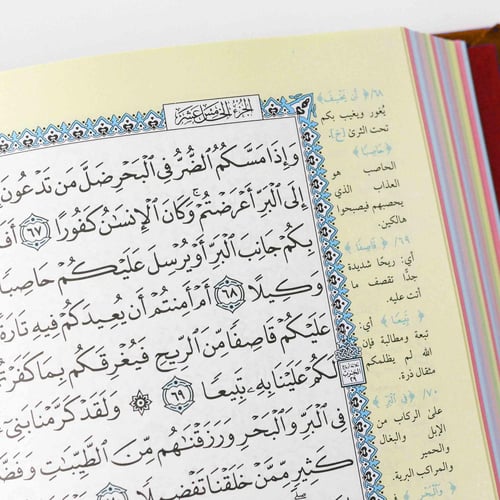 الجزء الخامس عشر
وَإِذَا مَسَّكُمُ ٱلضُّرُّ فِى ٱلْبَحْرِ ضَلَّ مَن تَدْعُونَ
إِلَى ٱلْبَرِّ أَعْرَضْتُمْ ۚ وَكَانَ ٱلْإِنسَٰنُ كَفُورًا ٦٧ أَفَ
بِكُمْ جَانِبَ ٱلْبَرِّ أَوْ يُرْسِلَ عَلَيْكُمْ حَاصِبًا
وَكِيلًا ٦٨ أَمْ أَمِنتُمْ أَن يُعِيدَكُمْ فِيهِ تَارَةً
عَلَيْكُمْ قَاصِفًا مِّنَ ٱلرِّيحِ فَيُغْرِقَكُم بِمَا كَفَرْتُ
لَكُمْ عَلَيْنَا بِهِۦ تَبِيعًا ٦٩ ۞ وَلَقَدْ كَرَّمْنَا بَنِىٓ
فِى ٱلْبَرِّ وَٱلْبَحْرِ وَرَزَقْنَٰهُم مِّنَ ٱلطَّيِّبَٰتِ وَفَضَّ
كَثِيرٍ مِّمَّنْ خَلَقْنَا تَفْضِيلًا
٦٨/ ﴿أَن يَخْسِفَ﴾
يغور ويغيب بكم
تحت الثرى (خ).
﴿حَاصِبًا﴾
الحاصب هو
العذاب الذي
يحصبهم فيصبحوا
هالكين.
٦٩/ ﴿قَاصِفًا﴾
أي: ريحًا شديدة
جدًا تقصف ما
أتت عليه.
﴿تَبِيعًا﴾ أي:
تبعة ومطالبة فإن
الله لم يظلمكم
مثقال ذرة.
٧٠/ ﴿فِى ٱلْبَرِّ﴾
على الركاب من
الإبل والبغال
والحمير
والمراكب البرية.
﴿وَٱلْبَحْرِ﴾